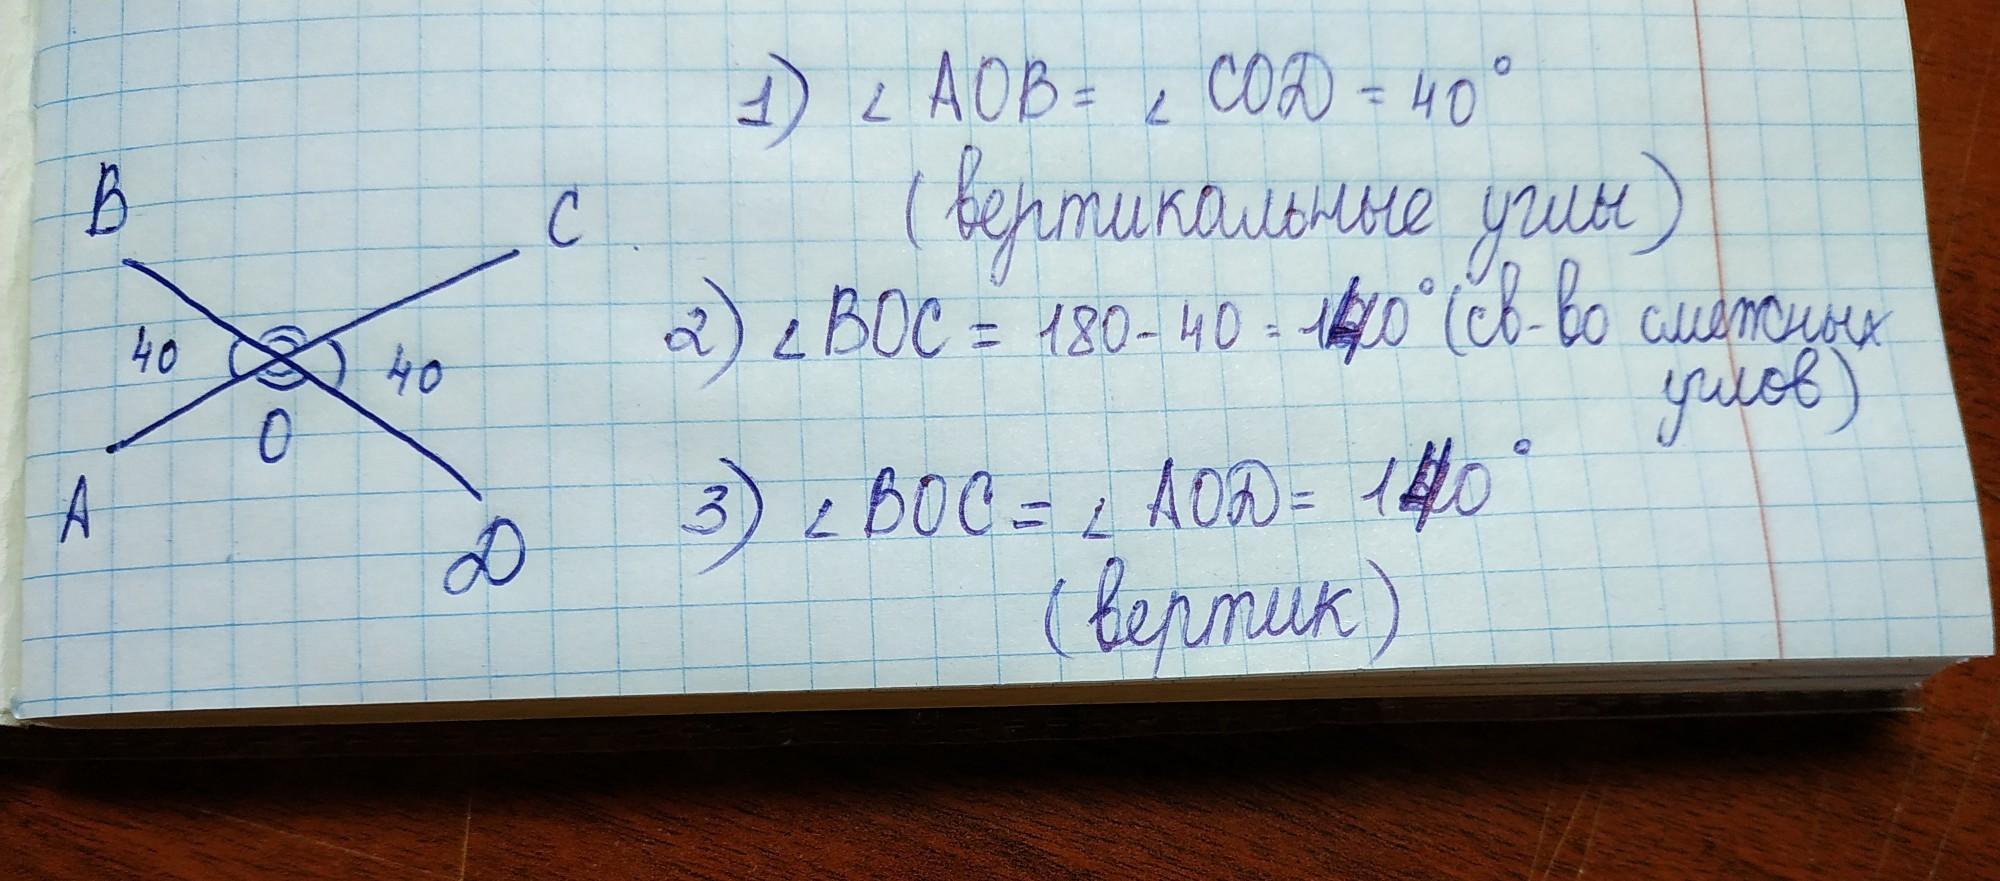 1) ∠ AOB = ∠ COD = 40°
(вертикальные углы)
2) ∠ BOC = 180 - 40 = 140° (св-во смежных
углов)
3) ∠ BOC = ∠ AOD = 140°
(вертик)
B
C
40
40
O
A
D